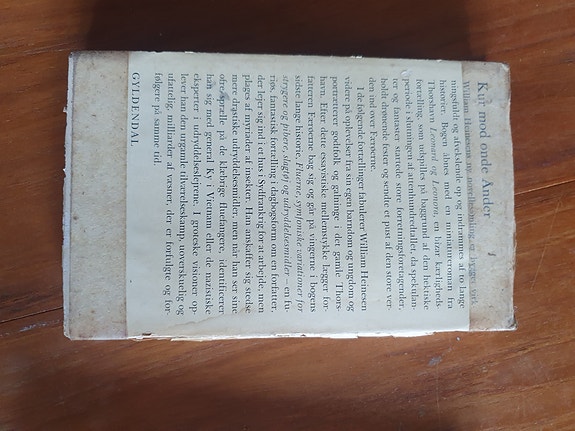 Kur mod onde Ånder
William Heinesens ny novellesamling er bygget
ningsfuldt og afvekslende op og indrammes af to lange
historier. Bogen åbnes med miniatureromanen fra
Thorshavn Leonard og Leonora, en bizar kærligheds-
fortælling, som udspilles på baggrund af den hektiske
periode i slutningen af attenhundredtallet, da spekulan-
ter og fantaster startede store forretningsforetagender,
holdt drønende fester og sendte et pust af den store ver-
den ind over Færøerne.
I de følgende fortællinger fabulerer William Heinesen
videre på oplevelser fra sin egen barndom og ungdom og
portrætterer godtfolk og galninge i det gamle Thors-
havn. Efter dette essayistiske mellemstykke lægger for-
fatteren Færøerne bag sig og går på vingerne i bogens
sidste lange historie, Fluerne, symfoniske variationer for
strygere og pibere, slagtøj og udryddelsesmidler – en fu-
riøs, fantastisk fortælling i dagbogsform om en forfatter,
der lejer sig ind i et hus i Sydfrankrig for at arbejde, men
plages af myriader af insekter. Han anskaffer sig stedse
mere drastiske udryddelsesmidler, men når han ser sine
ofre sprælle på de klæbrige fluefangere, identificerer
han sig med general Ky i Vietnam eller de nazistiske
eksperter i udryddelseslejrene. I groteske visioner op-
lever han den urgamle tilværelseskamp, uoverskuelig og
ufattelig, milliarder af væsner, der er forfulgte og for-
følgere på samme tid.
GYLDENDAL